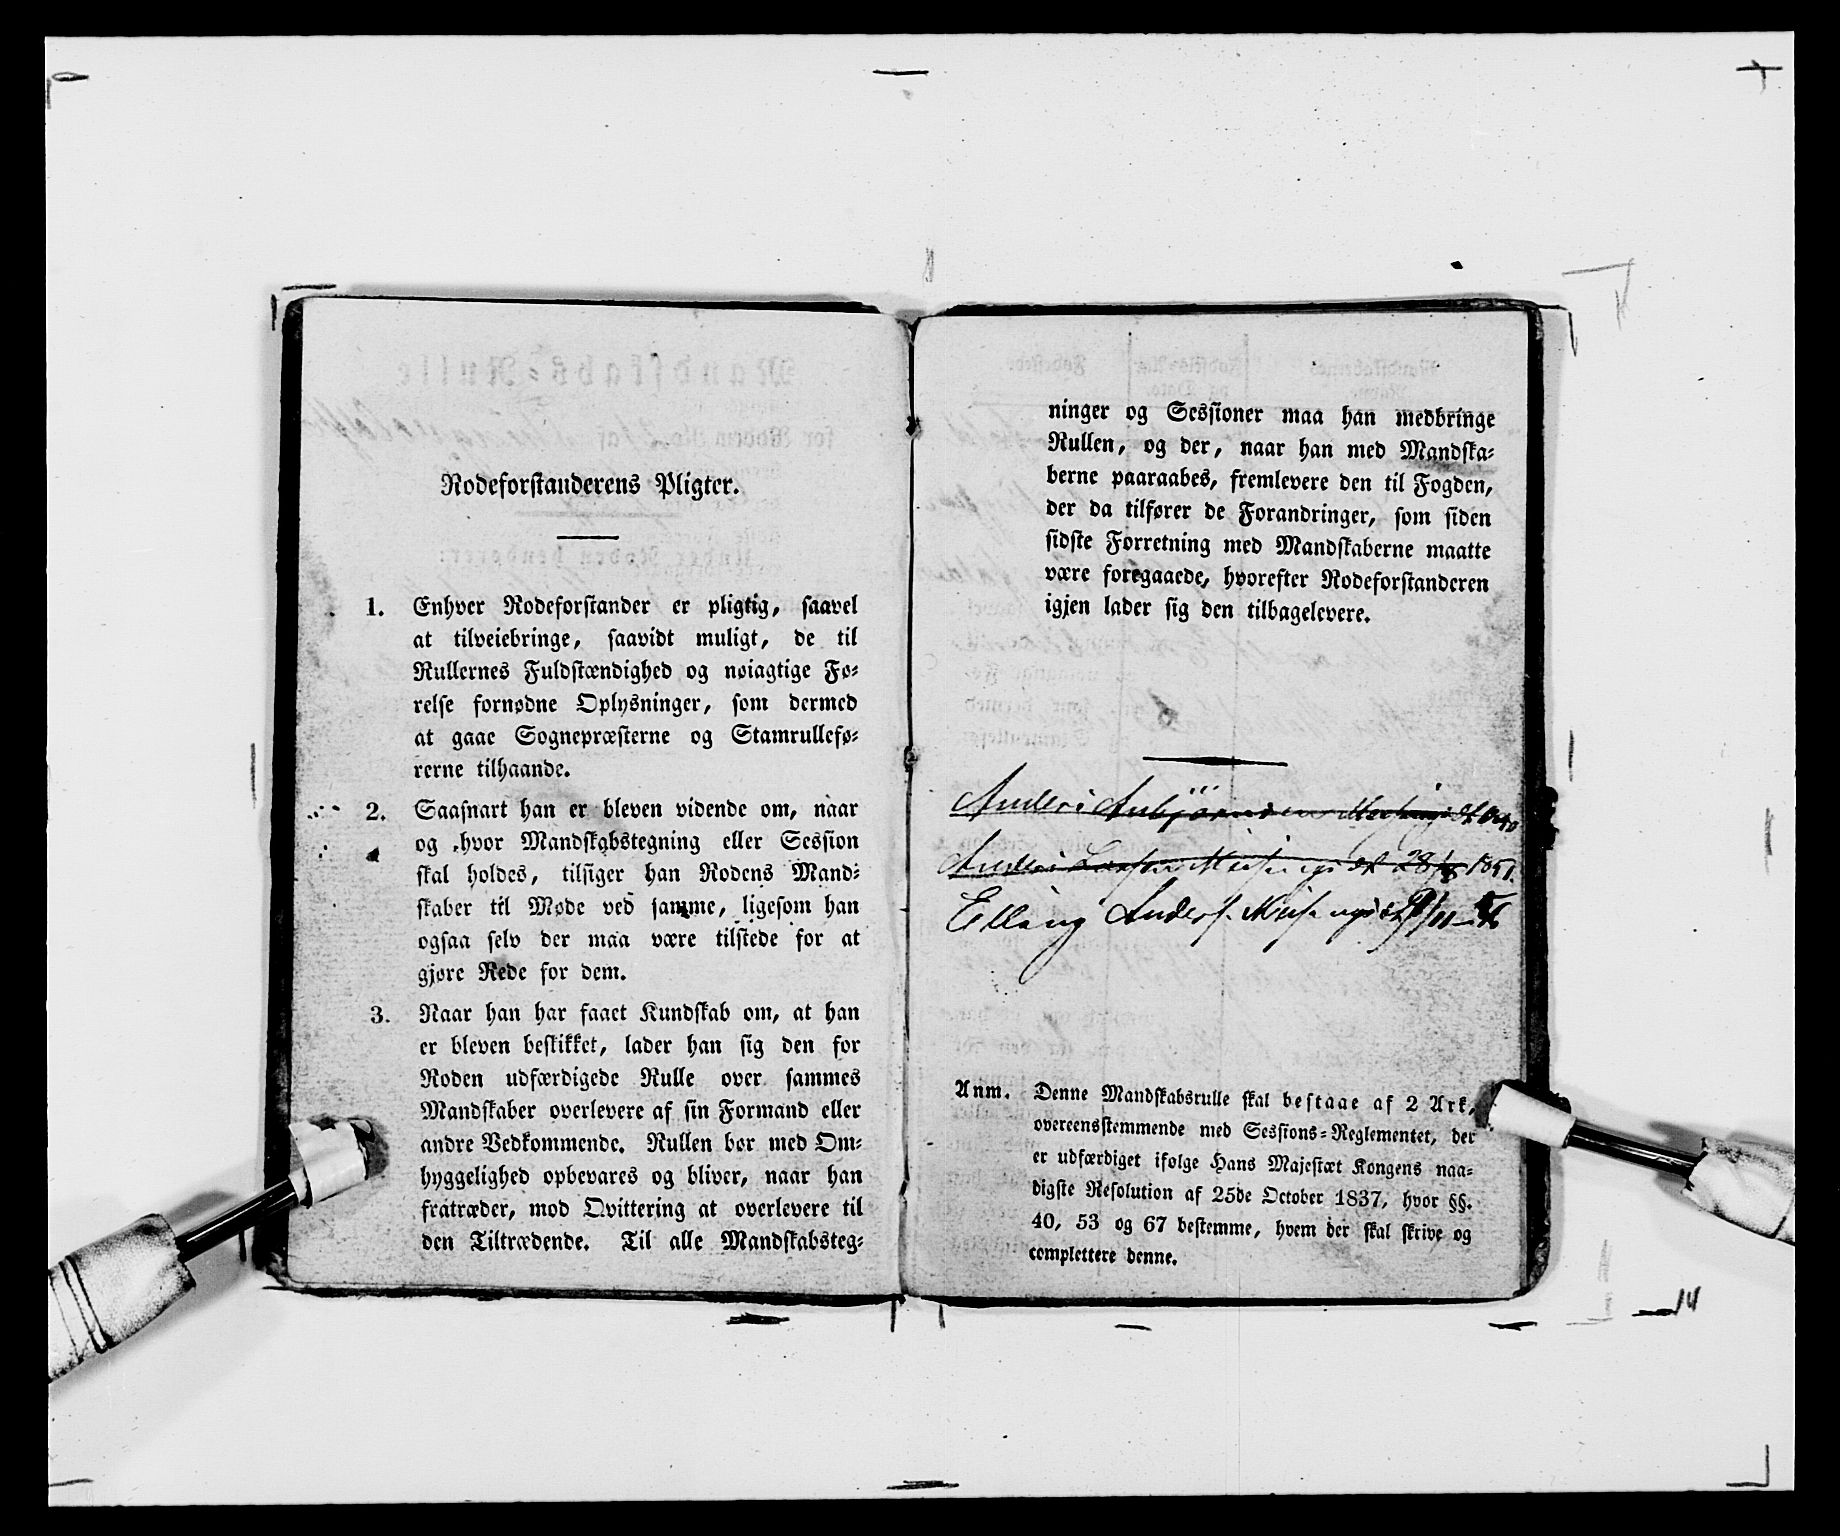 Rodeforstanderens Pligter.
1. Enhver Rodeforstander er pligtig, saavel
at tilveiebringe, saavidt muligt, de til
Rullernes Fuldstændighed og nøiagtige Fø-
relse fornødne Oplysninger, som dermed
at gaae Sognepræsterne og Stamrullefø-
rerne tilhaande.
2. Saasnart han er bleven vidende om, naar
og hvor Mandskabstegning eller Session
skal holdes, tilsiger han Rodens Mand-
skaber til Møde ved samme, ligesom han
ogsaa selv der maa være tilstede for at
gjøre Rede for dem.
3. Naar han har faaet Kundskab om, at han
er bleven beskikket, lader han sig den for
Roden udfærdigede Rulle over sammes
Mandskaber overlevere af sin Formand eller
andre Vedkommende. Rullen bør med Om-
hyggelighed opbevares og bliver, naar han
fratræder, mod Qvittering at overlevere til
den Tiltrædende. Til alle Mandskabsteg-
ninger og Sessioner maa han medbringe
Rullen, og der, naar han med Mandska-
berne paaraabes, fremlevere den til Fogden,
der da tilfører de Forandringer, som siden
sidste Forretning med Mandskaberne maatte
være foregaaede, hvorefter Rodeforstanderen
igjen lader sig den tilbagelevere.
Anders
Anders 28 1851.
Elling Anders.
Anm. Denne Mandskabsrulle skal bestaae af 2 Ark,
overeensstemmende med Sessions-Reglementet, der
er udfærdiget ifølge Hans Majestæt Kongens naa-
digste Resolution af 25de October 1837, hvor §§.
40, 53 og 67 bestemme, hvem der skal skrive og
complettere denne.
14